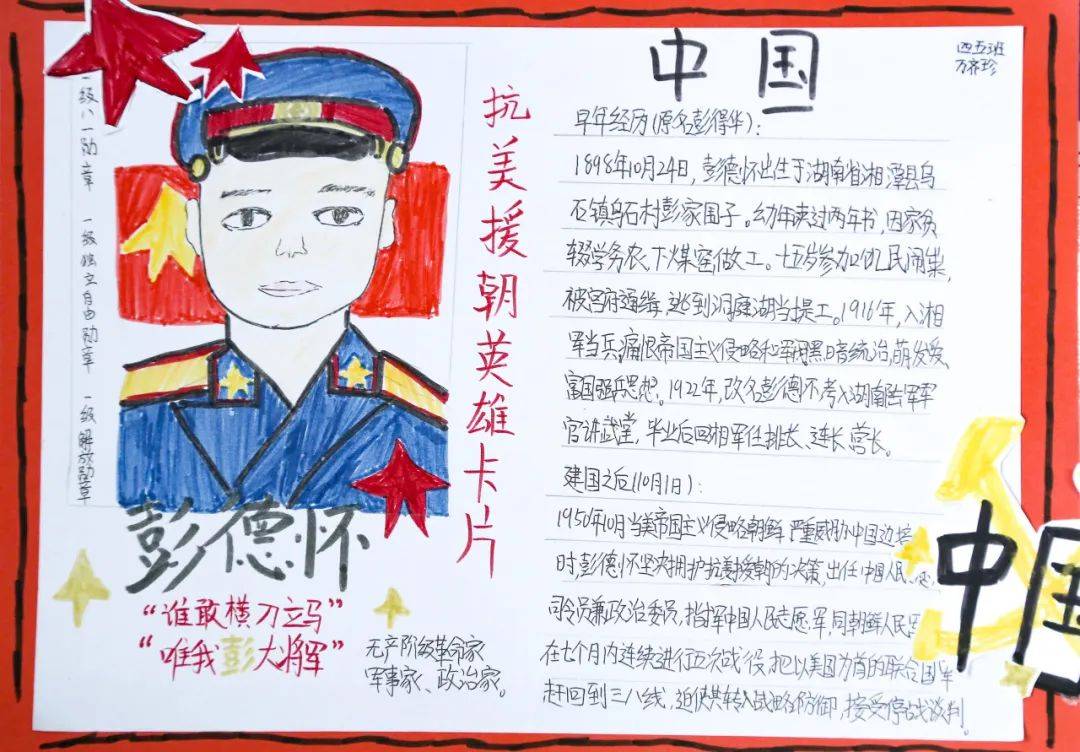 一级八一勋章 一级独立自由勋章 一级解放勋章
抗美援朝英雄卡片
彭德怀
“谁敢横刀立马”
“唯我彭大将军”
无产阶级革命家
军事家、政治家。
中国
四五班
早年经历(原名彭得华)：
1898年10月24日，彭德怀出生于湖南省湘潭县乌
石镇乌石村彭家围子。幼年读过两年书，因家贫
辍学务农、下煤窑做工。十五岁参加饥民闹粜，
被官府通缉，逃到洞庭湖当堤工。1916年，入湘
军当兵，痛恨帝国主义侵略和军阀黑暗统治，萌发爱
富国强兵思想。1922年，改名彭德怀考入湖南陆军军
官讲武堂，毕业后回湘军任排长、连长、营长。
建国之后(10月1日)：
1950年10月当美帝国主义侵略朝鲜 严重威胁中国边境
时，彭德怀坚决拥护抗美援朝的决策，出任中国人民
司令员兼政治委员，指挥中国人民志愿军，同朝鲜人民
在七个月内连续进行五次战役，把以美国为首的联合国军
赶回到三八线，迫使其转入战略防御，接受停战谈判。
中国